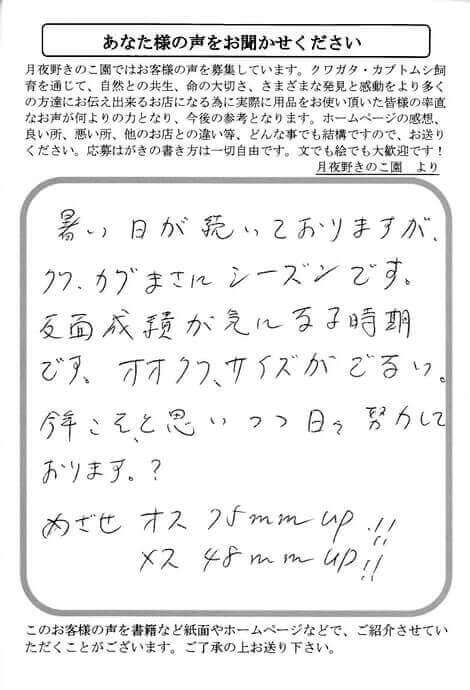 あなた様の声をお聞かせください
月夜野きのこ園ではお客様の声を募集しています。クワガタ・カブトムシ飼
育を通じて、自然との共生、命の大切さ、さまざまな発見と感動をより多く
の方達にお伝え出来るお店になる為に実際に用品をお使い頂いた皆様の率直
なお声が何よりの力となり、今後の参考となります。ホームページの感想、
良い所、悪い所、他のお店との違い等、どんな事でも結構ですので、お送り
ください。応募はがきの書き方は一切自由です。文でも絵でも大歓迎です！
月夜野きのこ園　より
暑い日が続いておりますが、
クワ、カブまさにシーズンです。
反面成績が気になる時期
です。オオクワ、サイズがでない。
今年こそ、と思いつつ日々努力して
おります。？
めざせ オス 75mmup!!
メス 48mmup!!
このお客様の声を書籍など紙面やホームページなどで、ご紹介させてい
ただくことがございます。ご了承の上お送り下さい。